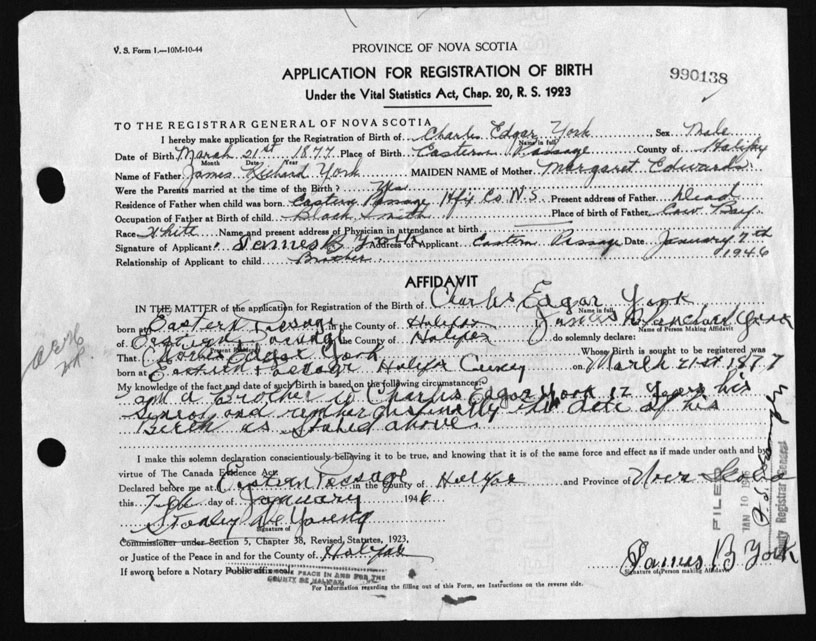 V. S. Form 1.—10M-10-44
PROVINCE OF NOVA SCOTIA
APPLICATION FOR REGISTRATION OF BIRTH
990138
Under the Vital Statistics Act, Chap. 20, R. S. 1923
TO THE REGISTRAR GENERAL OF NOVA SCOTIA
I hereby make application for the Registration of Birth of Charles Edgar York Sex Male
Name in full
Date of Birth March 21st 1877 Place of Birth Eastern Passage County of Halifax
Month Date Year
Name of Father James Richard York MAIDEN NAME of Mother Margaret Edwards
Were the Parents married at the time of the Birth? Yes
Residence of Father when child was born Eastern Passage Hfx Co N.S Present address of Father Dead
Occupation of Father at Birth of child Black Smith Place of birth of Father Cow Bay
Race White Name and present address of Physician in attendance at birth
Signature of Applicant James B York Address of Applicant Eastern Passage Date January 7th
1946
Relationship of Applicant to child Brother
AFFIDAVIT
IN THE MATTER of the application for Registration of the Birth of Charles Edgar York
Name in full
born at Eastern Passage in the County of Halifax James York
Name of Person Making Affidavit
of Eastern Passage in the County of Halifax do solemnly declare:
Present Residence
That Charles Edgar York Whose Birth is sought to be registered was
born at Eastern Passage Halifax on March 21st 1877
My knowledge of the fact and date of such Birth is based on the following circumstances:
am a Brother to Charles Edgar York 12 Years his
Senior and distinctly the date of his
Birth as Stated above
I make this solemn declaration conscientiously believing it to be true, and knowing that it is of the same force and effect as if made under oath and by
virtue of The Canada Evidence Act.
Declared before me at Eastern Passage in the County of Halifax and Province of Nova Scotia
this 7th day of January 1946
Stanley De Young
Signature of
Commissioner under Section 5, Chapter 38, Revised Statutes, 1923,
or Justice of the Peace in and for the County of Halifax
James B York
Signature of Person making Affidavit
If sworn before a Notary Public affix seal
PEACE IN AND FOR THE
COUNTY OF HALIFAX
For Information regarding the filling out of this Form, see Instructions on the reverse side.
FILED
JAN 10 1946
Deputy Registrar General